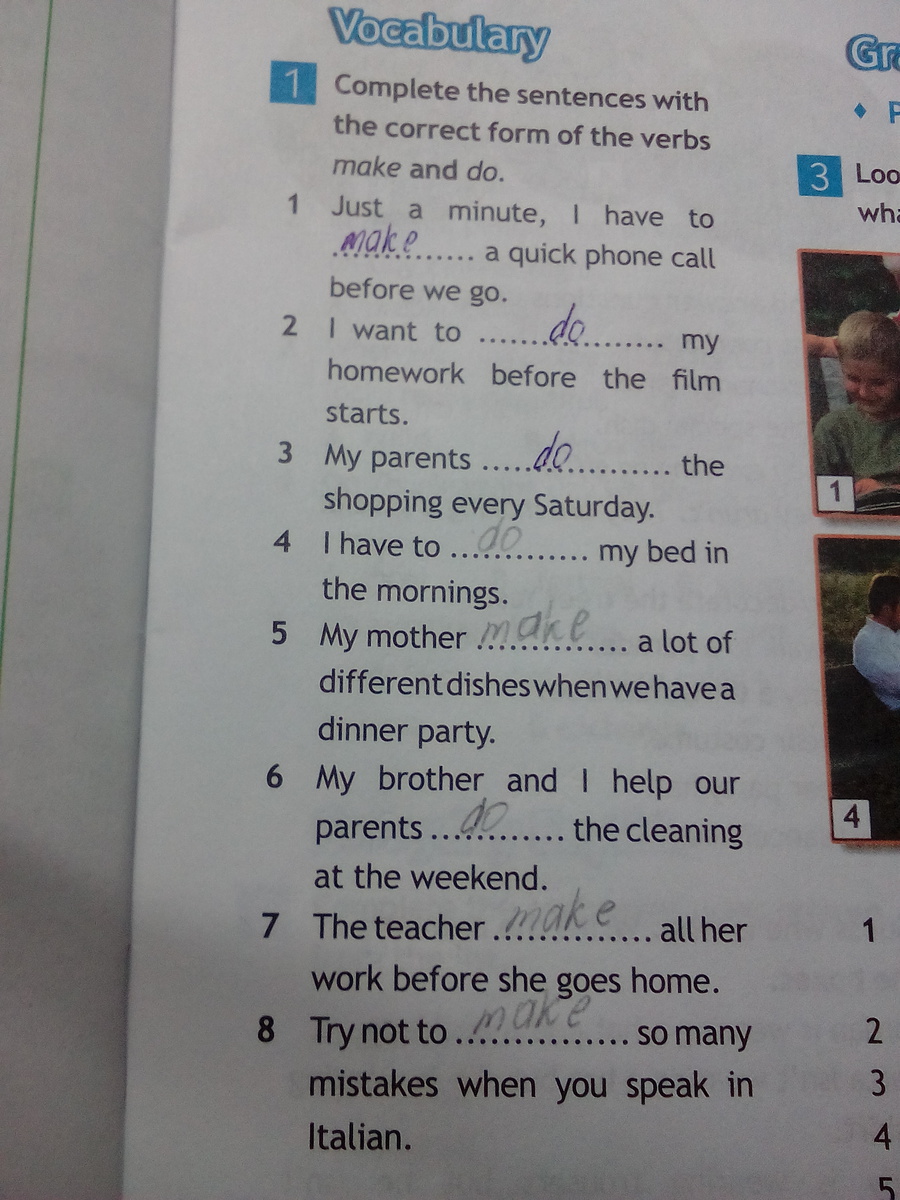 Vocabulary
1 Complete the sentences with
the correct form of the verbs
make and do.
1 Just a minute, I have to
make a quick phone call
before we go.
2 I want to do my
homework before the film
starts.
3 My parents do the
shopping every Saturday.
4 I have to do my bed in
the mornings.
5 My mother make a lot of
different dishes when we have a
dinner party.
6 My brother and I help our
parents do the cleaning
at the weekend.
7 The teacher make all her
work before she goes home.
8 Try not to make so many
mistakes when you speak in
Italian.
3
1
4
1
2
3
4
5